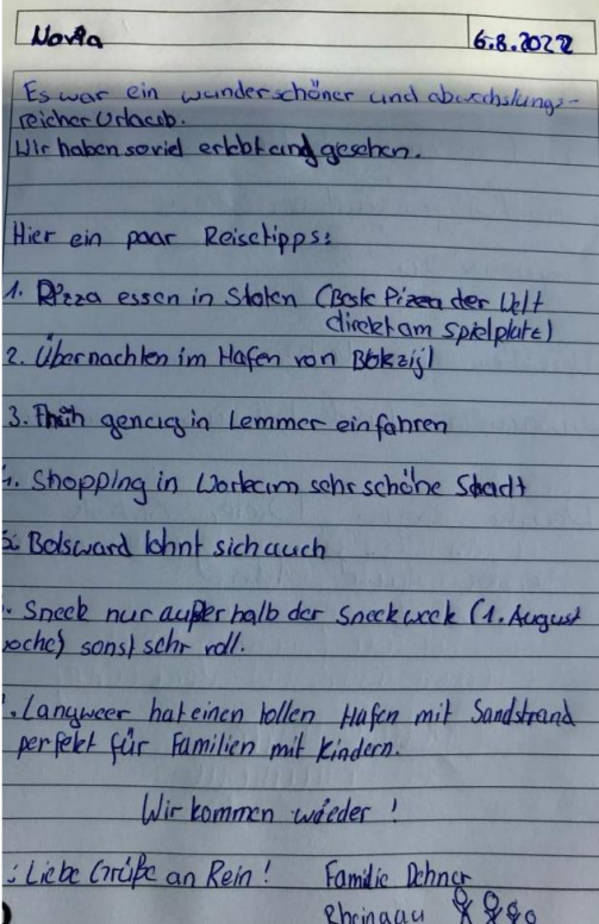 Novia 6.8.2022
Es war ein wunderschöner und abwechslungs-
reicher Urlaub.
Wir haben soviel erlebt und gesehen.
Hier ein paar Reisetipps:
1. Pizza essen in Sloten (Beste Pizza der Welt
direkt am Spielplatz)
2. Übernachten im Hafen von Blokzijl
3. Früh genug in Lemmer einfahren
4. Shopping in Workum sehr schöne Stadt
5. Bolsward lohnt sich auch
. Sneek nur außerhalb der Sneekweek (1. August
woche) sonst sehr voll.
. Langweer hat einen tollen Hafen mit Sandstrand
perfekt für Familien mit Kindern.
Wir kommen wieder!
: Liebe Grüße an Rein! Familie Dehner
Rheingau